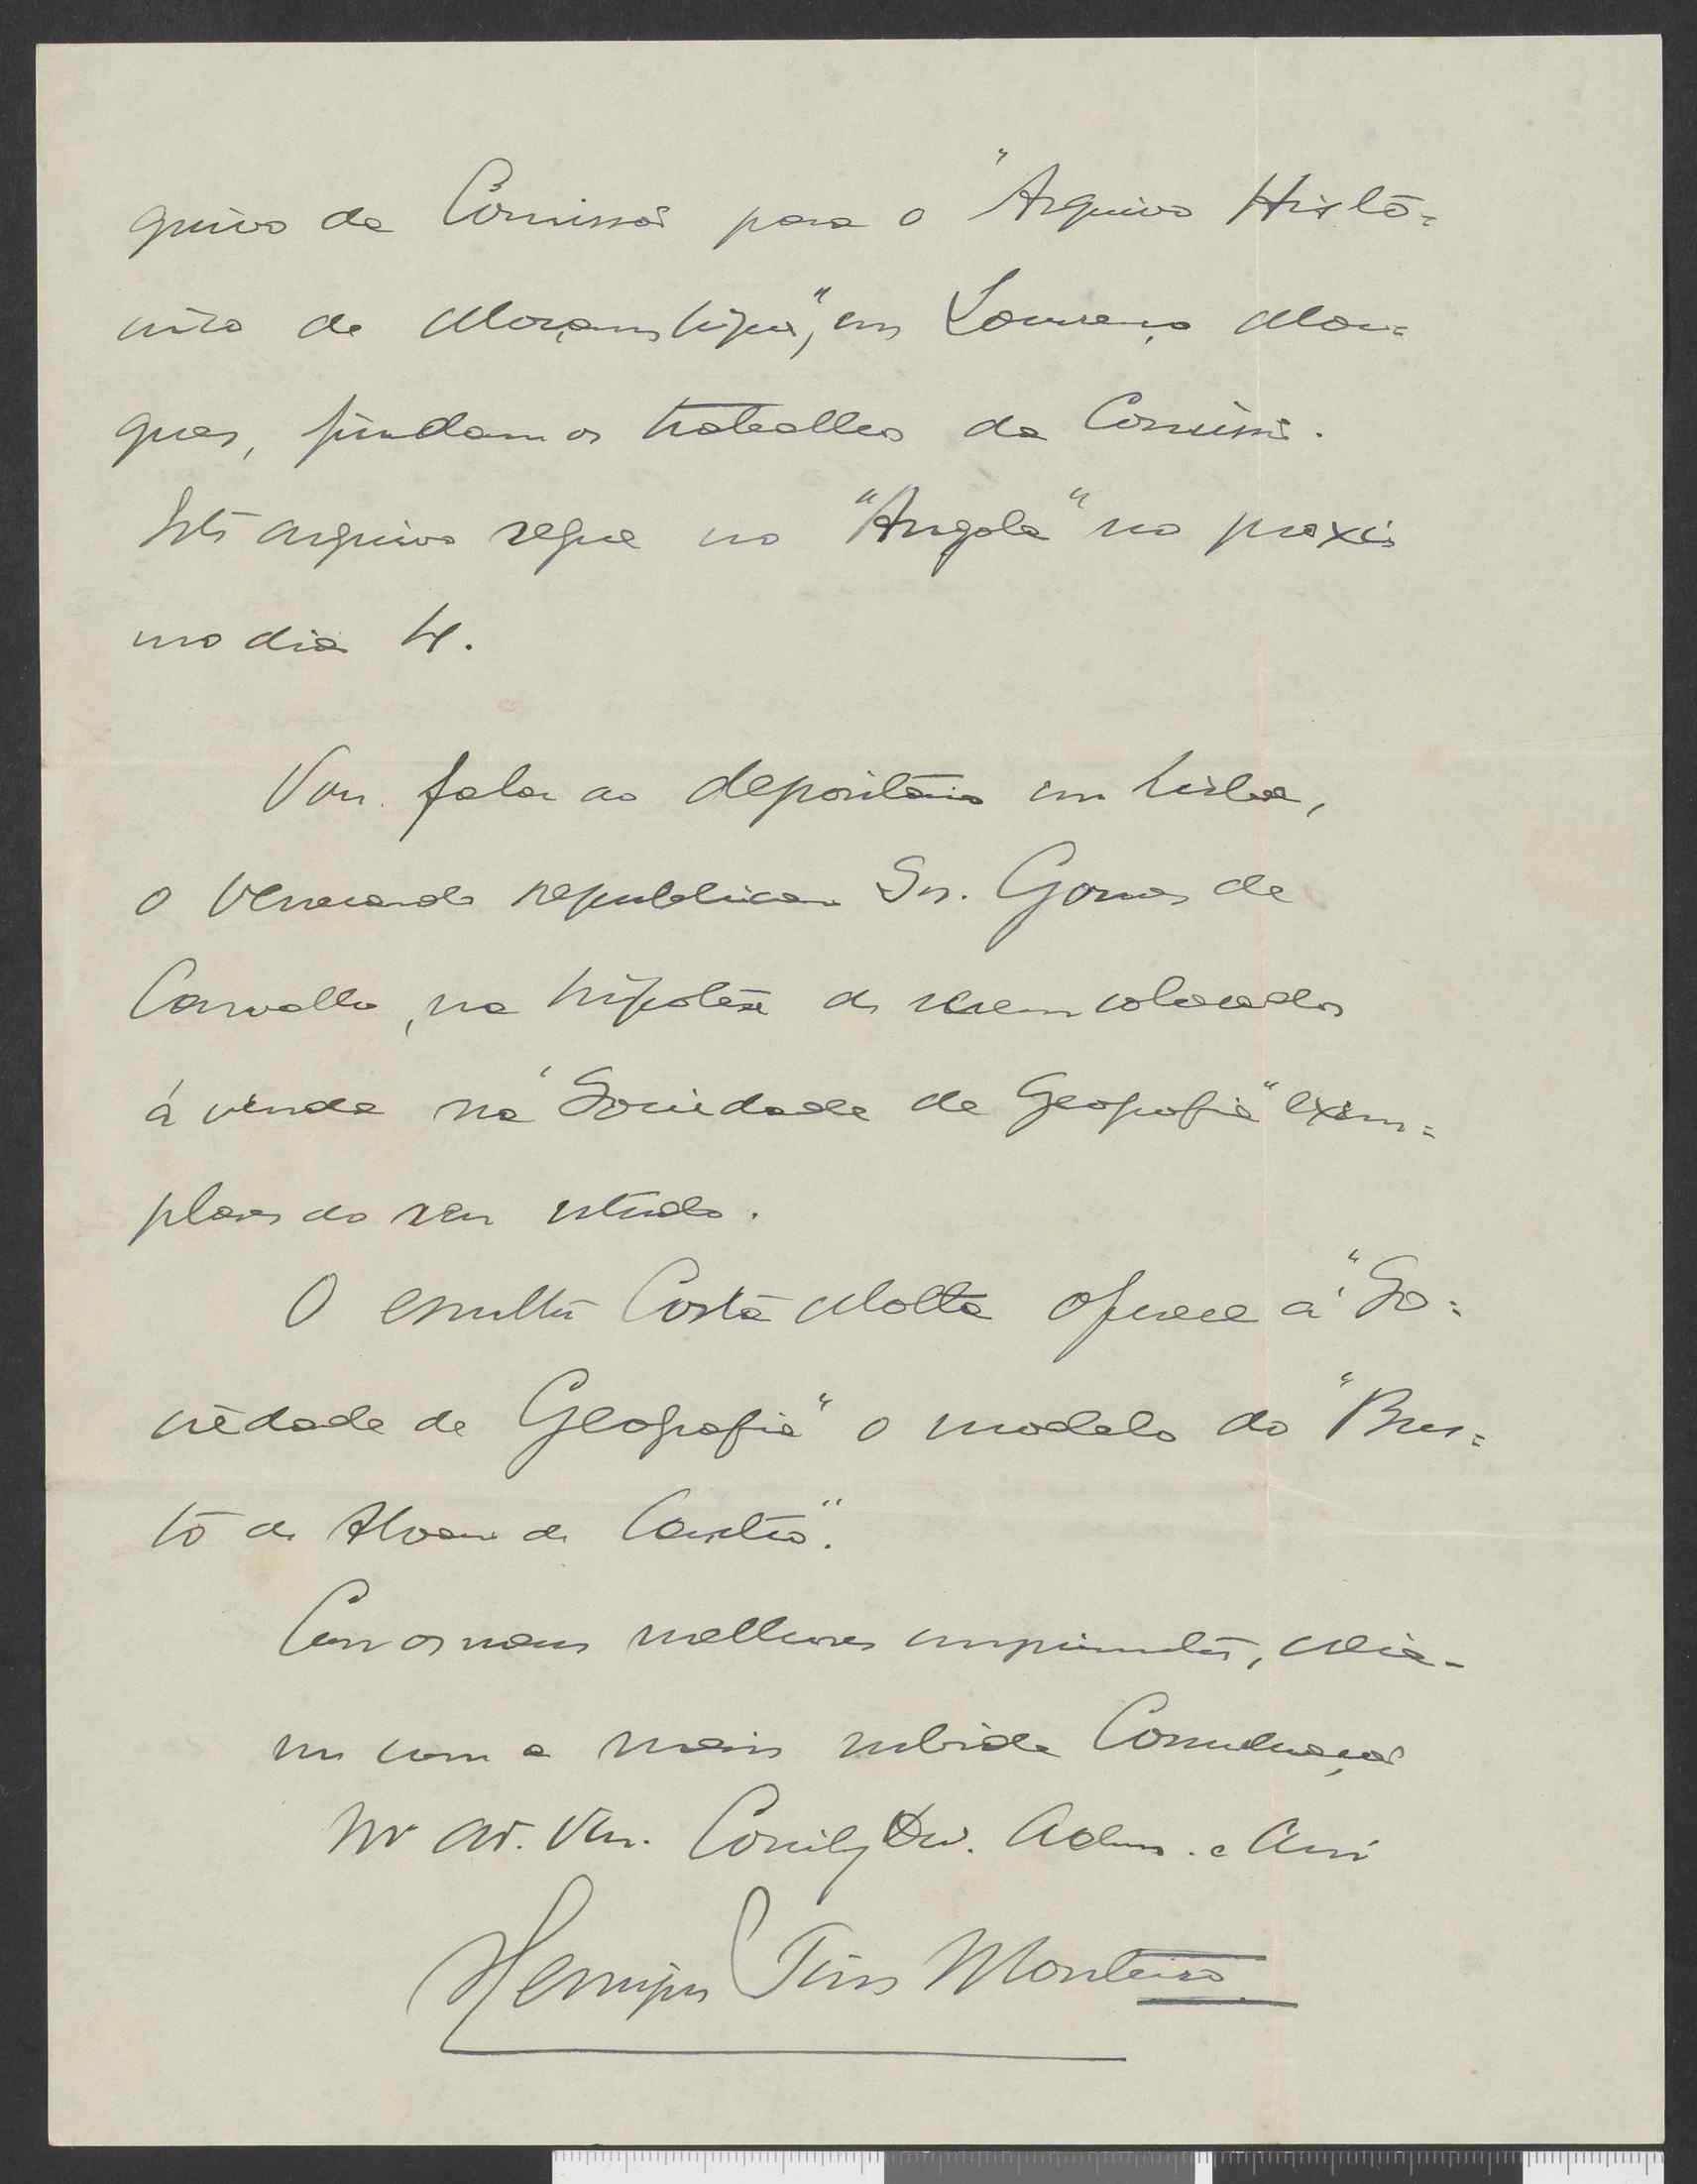 quivo da Comissão para o "Arquivo Histó=
rico de Moçambique", em Lourenço Mar=
ques, findam os trabalhos da Comissão.
Este arquivo segue no "Angola" no proxi
mo dia 4.
Vou falar ao depositário em Lisboa,
o venerando republicano Snr. Gomes de
Carvalho, na hipótese de serem colocados
á venda na "Sociedade de Geografia" exem=
plares do seu estudo.
O escultor Costa Motta oferece á "So=
ciedade de Geografia" o modelo do "Bus=
to de Alvaro de Castro".
Com os meus melhores cumprimentos,
me com a mais subida Consideração
Ven. Adm. e Am
Henrique Pires Monteiro